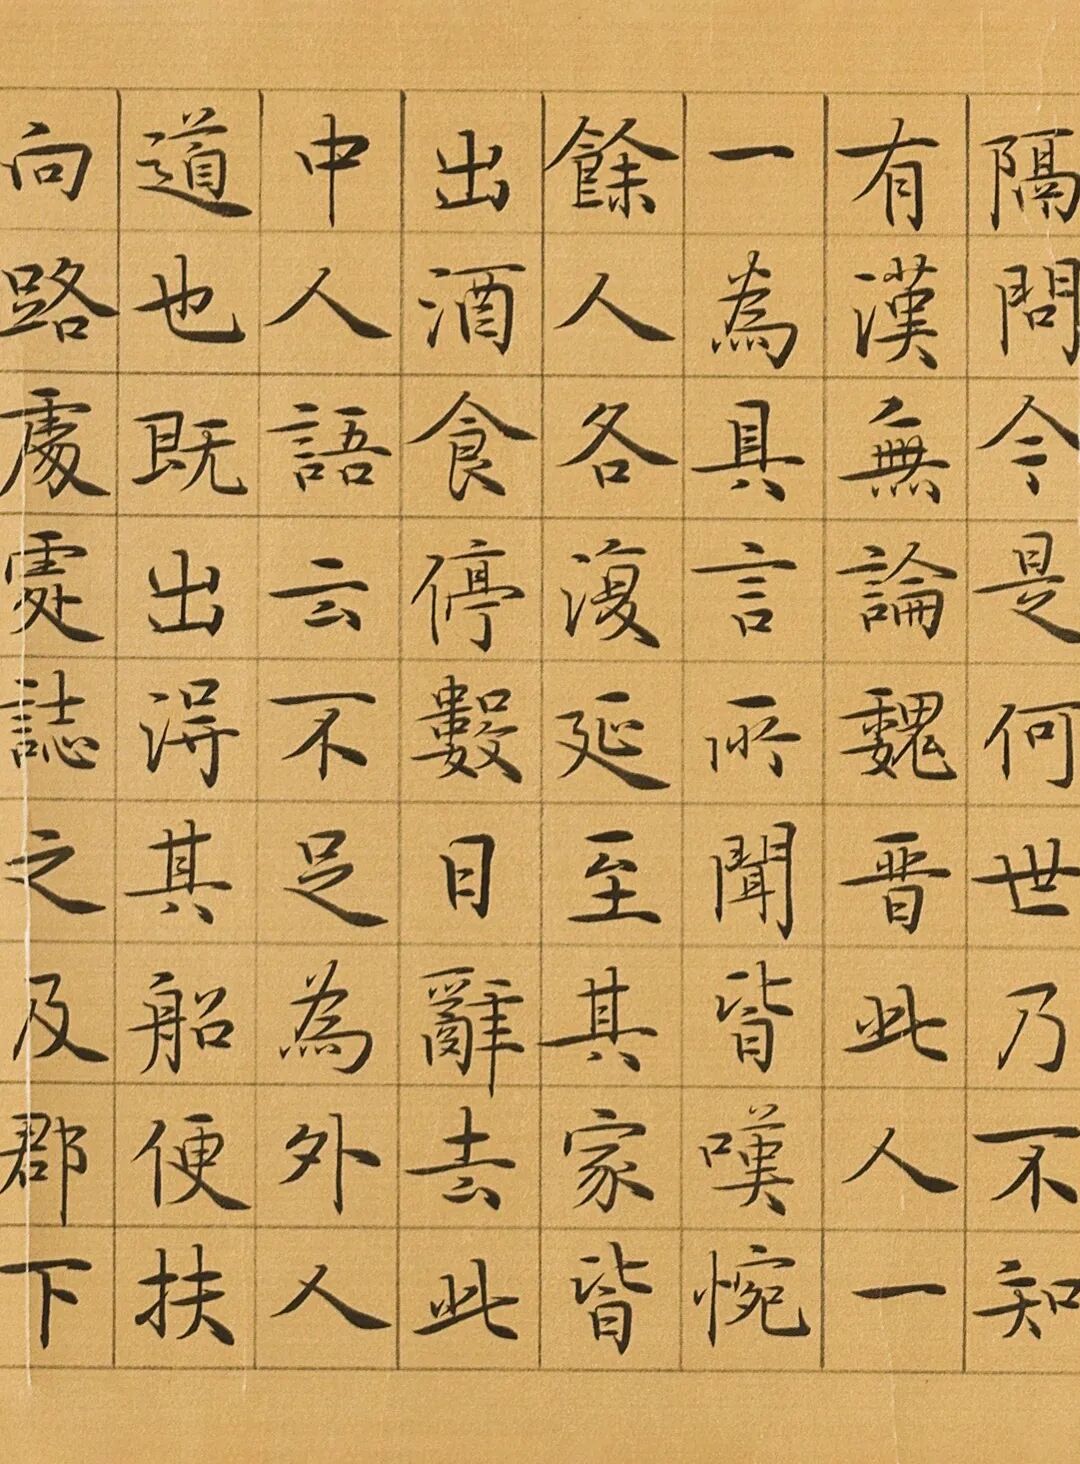 隔問今是何世乃不知
有漢無論魏晋此人一
一為具言所聞皆嘆惋
餘人各復延至其家皆
出酒食停數日辭去此
中人語云不足為外人
道也既出得其船便扶
向路處處誌之及郡下